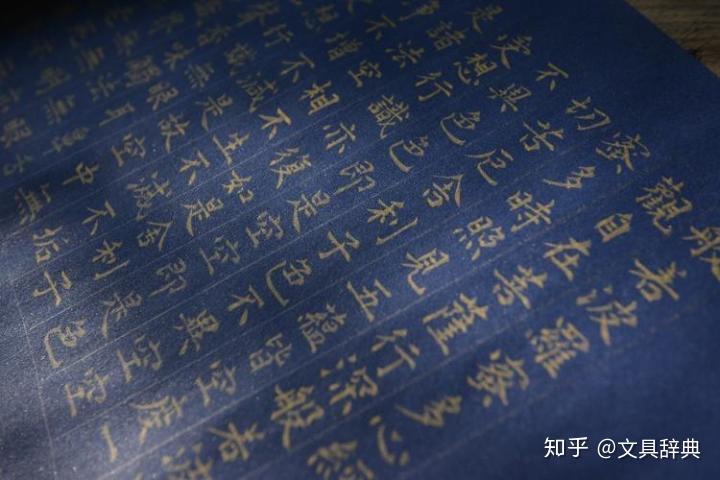 般若波羅蜜多心經
觀自在菩薩行深般若波
蜜多時照見五蘊皆空度一
切苦厄舍利子色不異空空
不異色色即是空空即是色
受想行識亦復如是舍利子
是諸法空相不生不滅不垢
淨不增不減是故空中無
想行識無眼耳鼻舌
香味觸法無眼
無無明亦
知乎 @文具辞典